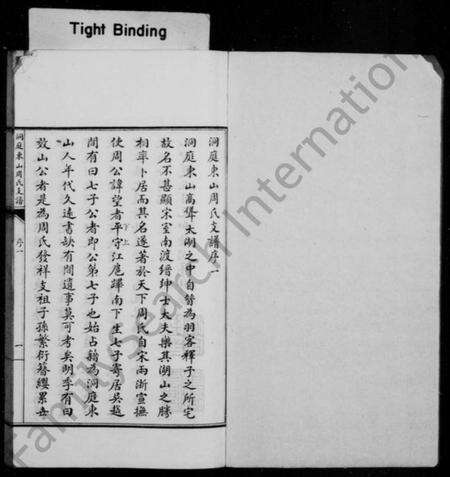 Tight Binding
洞庭東山周氏支譜序一
洞庭東山高聳太湖之中自昔為羽客釋子之所宅
故名不甚顯宋室南渡縉紳士大夫樂其湖山之勝
相率卜居而其名遂著於天下周氏自宋兩浙宣撫
使周公諱望者平守江扈蹕南下生七子寄居吳越
間有曰七子公者即公第七子也始占籍為洞庭東
山人年代久遠書缺有間遺事莫可考矣明季有曰
敖山公者是為周氏發祥支祖子孫繁衍簪纓累世
洞庭東山周氏支譜
序一
一
FamilySearch International